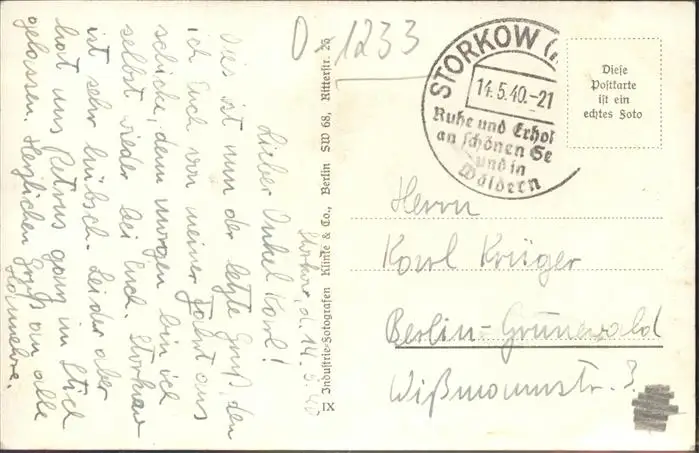 Storkow, d. 14.5.40
Lieber Onkel Karl!
Dies ist nun der letzte Gruß, den
ich Euch von meiner Fahrt aus
schicke, denn morgen bin ich
selbst wieder bei Euch. Storkow
ist sehr hübsch. Leider aber
hat uns Petrus ganz im Stich
gelassen. Herzlichen Gruß an alle
Hannelore.
IX Industrie-Fotografen Klinke & Co., Berlin SW 68, Ritterstr. 26
D-1233
STORKOW (
14.5.40.-21
Ruhe und Erhol
an schönen Se
und in
Wäldern
Diese
Postkarte
ist ein
echtes Foto
Herrn
Karl Krüger
Berlin-Grunewald
Wißmannstr. 3